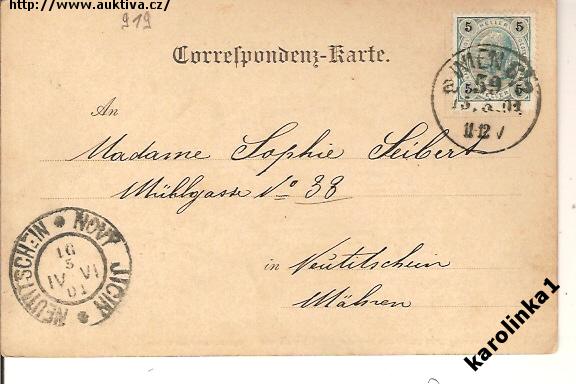 http://www.auktiva.cz/
919
Correspondenz-Karte.
5 HELLER 5
5 5
WIEN
59
11-12 V
An
Madame Sophie Seibert
Mühlgasse No 38
in Neutitschein
Mähren
NEUTITSCHEIN * NOVÝ JIČÍN *
16
5
IV VI
01
karolinka1